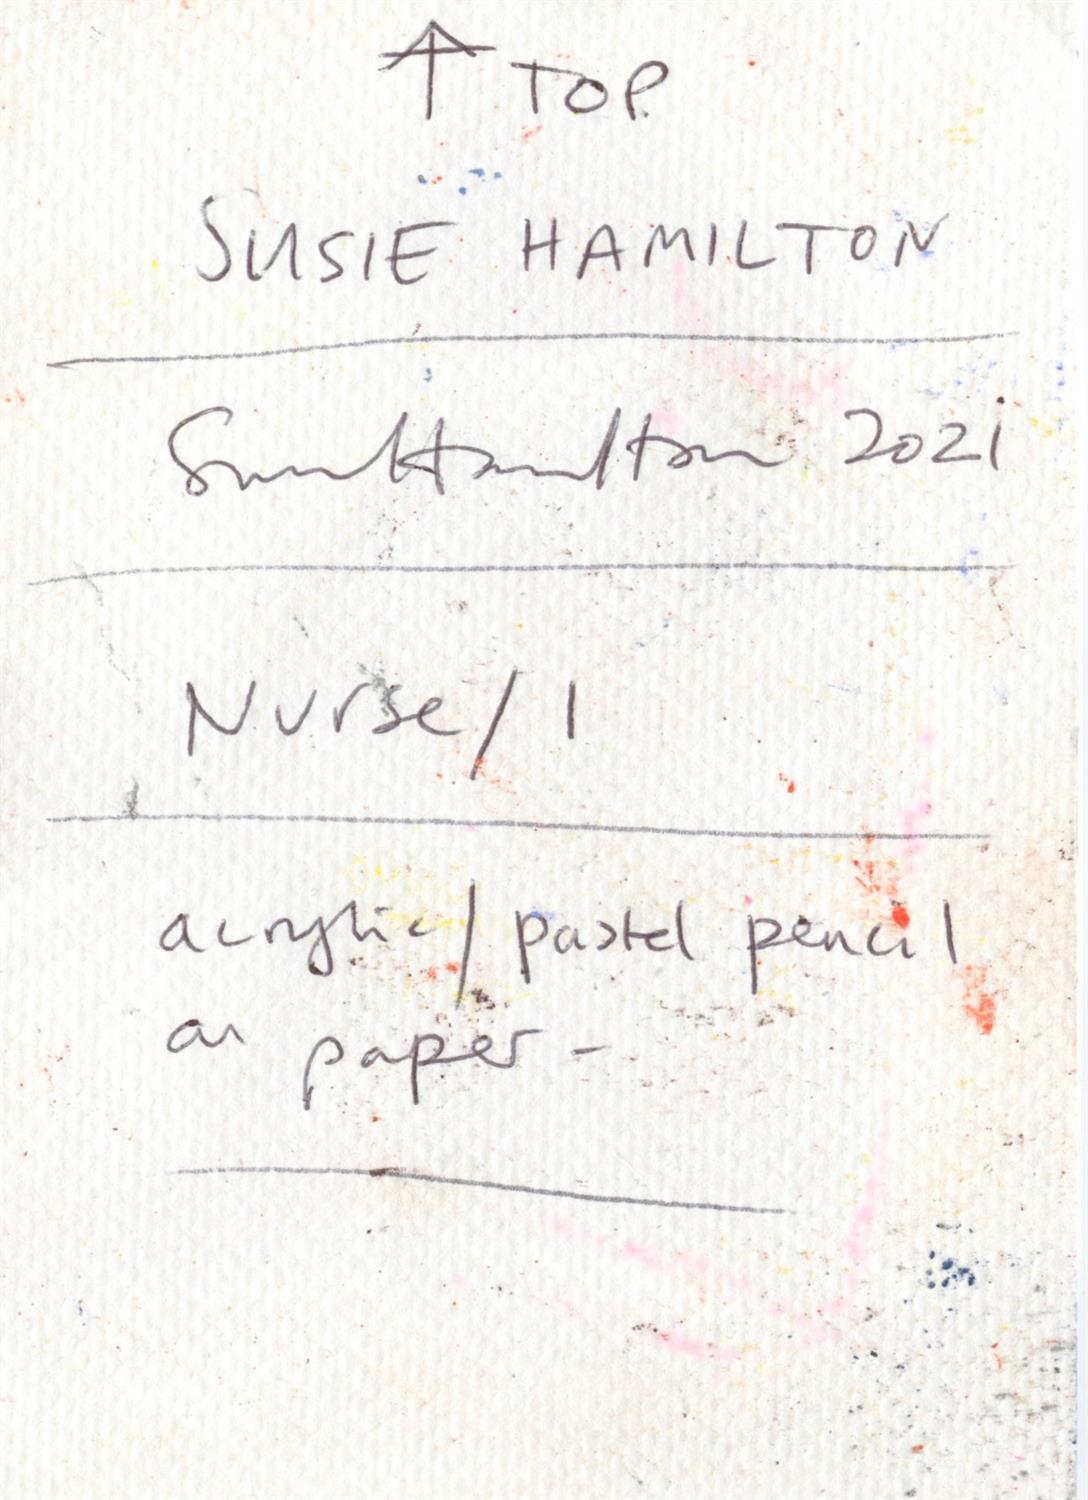 ↑ TOP
SUSIE HAMILTON
Susie Hamilton 2021
Nurse/1
acrylic/pastel pencil
on paper -